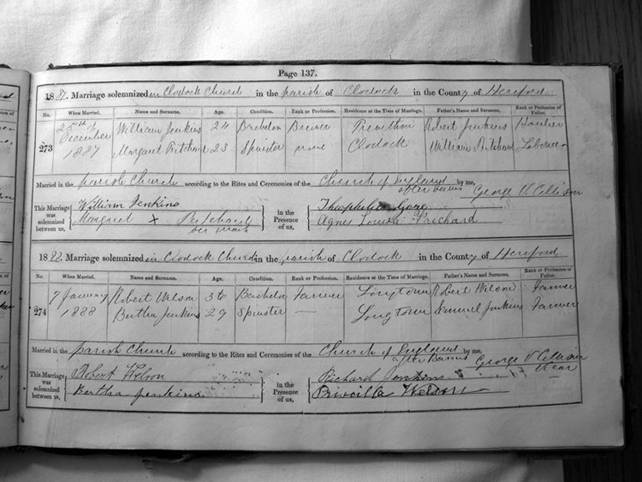 Page 137.
1887. Marriage solemnized in Clodock Church in the parish of Clodock in the County of Hereford
No. When Married. Name and Surname. Age. Condition. Rank or Profession. Residence at the Time of Marriage. Father's Name and Surname. Rank or Profession of Father.
273 25th December 1887 William Jenkins 24 Bachelor Residence Robert Jenkins Haulier
Margaret Pritchard 23 Spinster none Clodock William Pritchard Laborer
Married in the parish Church according to the Rites and Ceremonies of the Church of England after banns by me,
This Marriage was solemnized between us, William Jenkins in the Presence of us, Theophilus
Margaret X Pritchard her mark Agnes Louisa Pritchard
1888. Marriage solemnized in Clodock Church in the parish of Clodock in the County of Hereford
No. When Married. Name and Surname. Age. Condition. Rank or Profession. Residence at the Time of Marriage. Father's Name and Surname. Rank or Profession of Father.
274 7 January 1888 Robert Watson 36 Bachelor Farmer Longtown Robert Farmer
Bertha Jenkins 29 Spinster — Longtown Samuel Jenkins Farmer
Married in the parish Church according to the Rites and Ceremonies of the Church of England after Banns by me, George
This Marriage was solemnized between us, Robert in the Presence of us, Richard Jenkins
Bertha Jenkins Priscilla